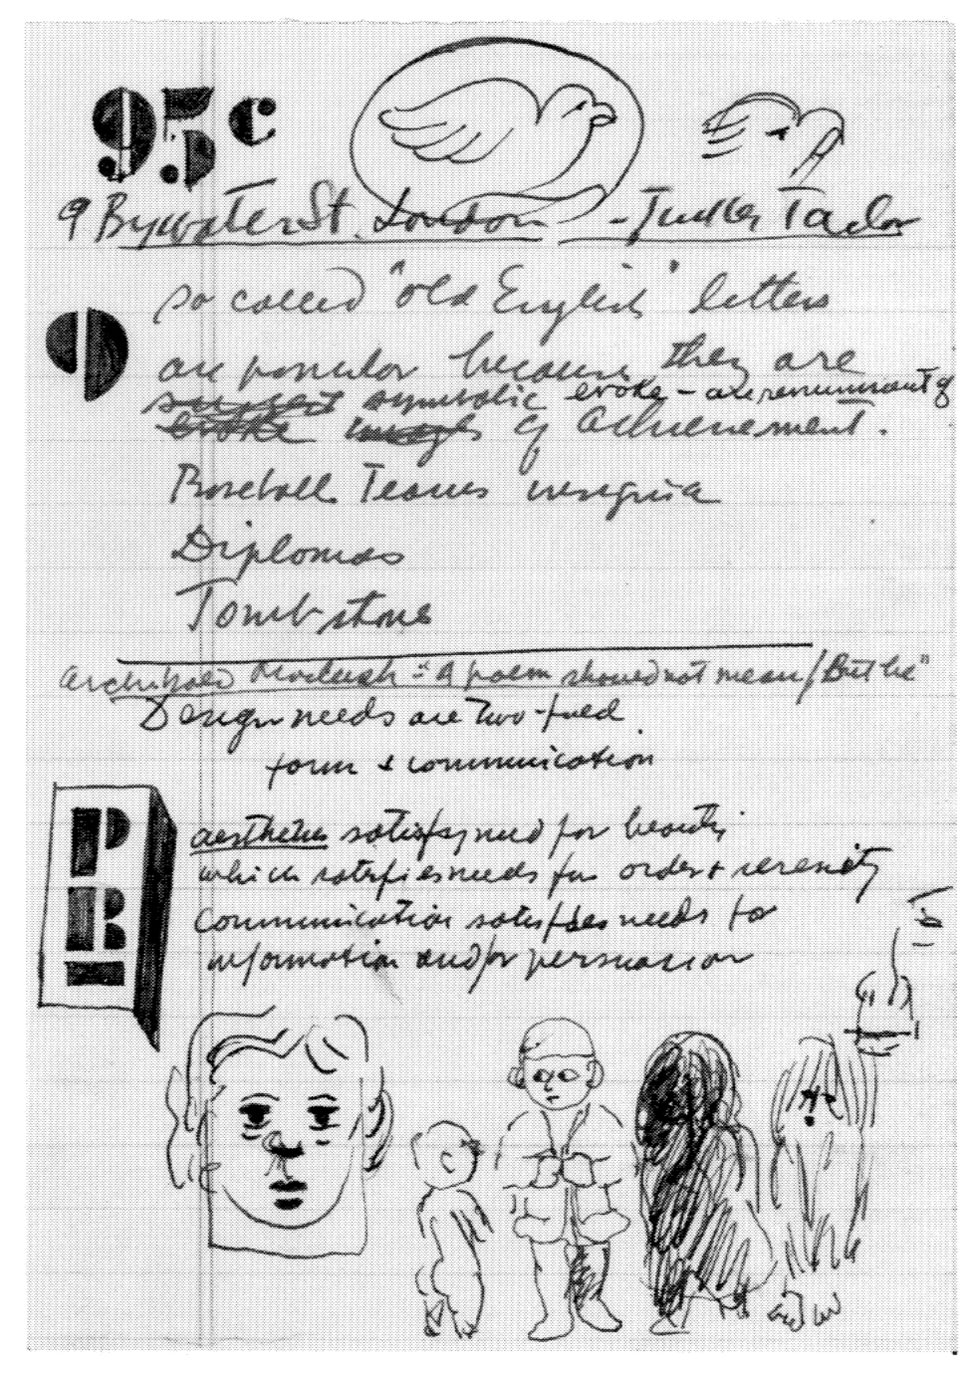 95c
9 Bywater St. London - Tucker Taylor
9
so called "old English" letters
are popular because they are
suggest symbolic evoke - are reminiscent of
evoke images of achievement.
Baseball Teams insignia
Diplomas
Tombstone
Archibald MacLeish - "A poem should not mean/But be"
Design needs are two-fued
form & communication
P
B
aesthetics satisfy need for beauty
which satisfies needs for order & serenity
communication satisfies needs for
information and/or persuasion